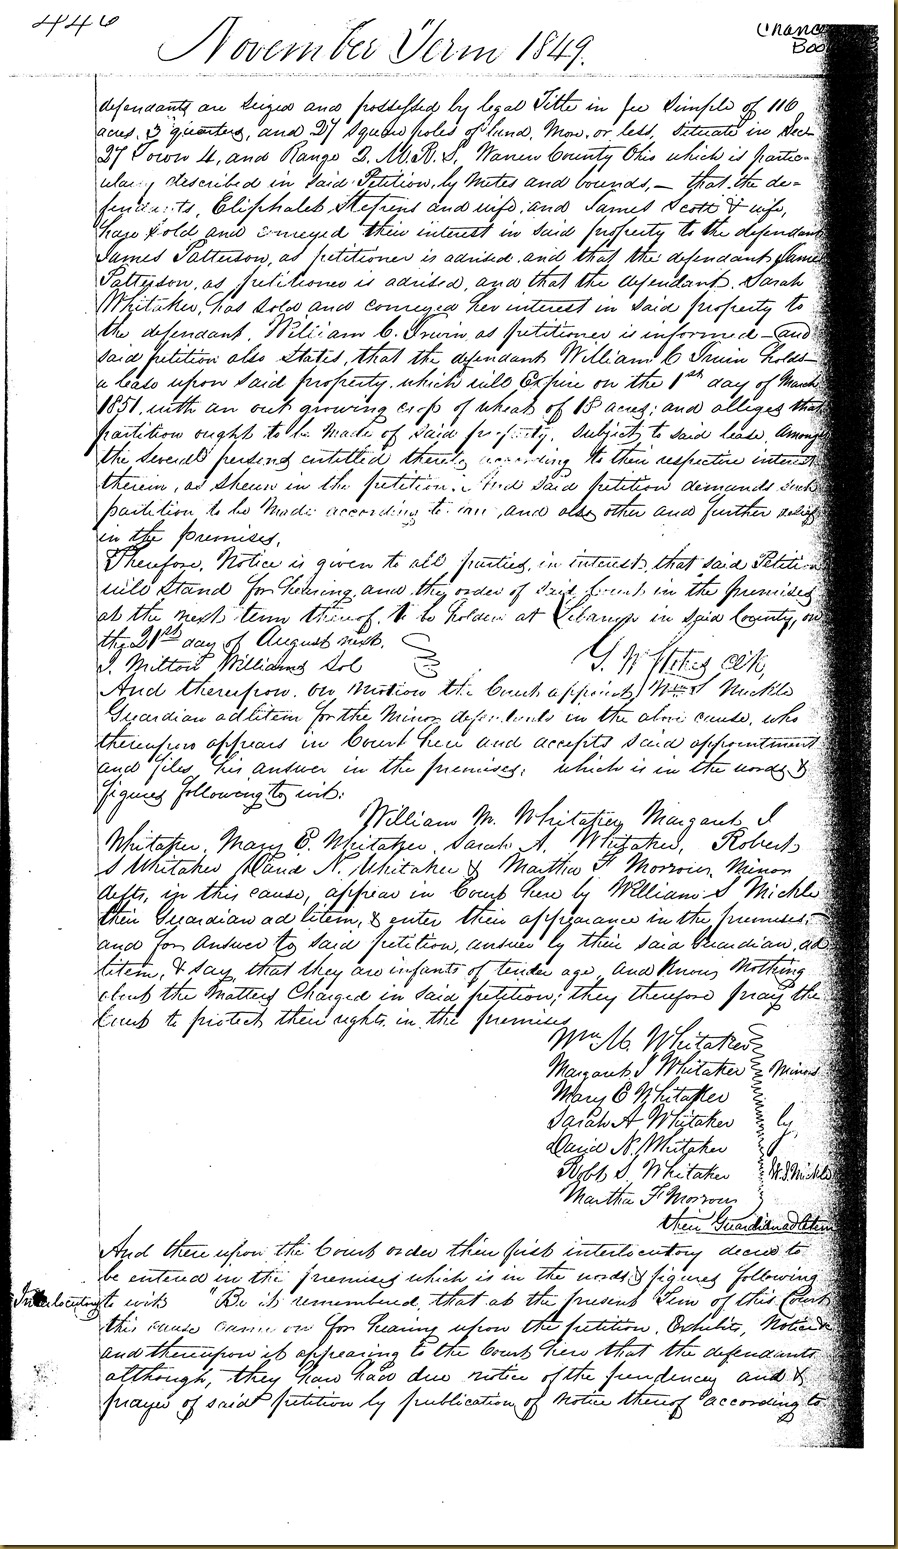 446
November Term 1849.
Chanc
Boo
defendants are Seized and possessed by legal Title in fee Simple of 116
acres, 3 quarters, and 27 square poles of land, More, or less, Situate in Sect
27 Town 4, and Range 2. M. R. S, Warren County Ohio which is partic-
ulary described in said Petition, by Metes and bounds, — that the de=
fendants, Eliphalet Stephens and wife, and James Scott & wife,
have Sold and conveyed their interest in said property to the defendant
James Patterson, as petitioner is advised, and that the defendant James
Patterson, as petitioner is advised, and that the defendant, Sarah
Whitaker, has sold and conveyed her interest in said property to
the defendant, William C. Irwin, as petitioner is informed — and
said petition also States, that the defendant William C Irwin holds
a lease upon said property, which will Expire on the 1st day of March
1851, with an out growing crop of wheat of 18 acres; and alleges that
partition ought to be Made of said property, Subject, to said lease, among
the several persons entitled thereto according to their respective interest
therein, as Shewn in the petition. And said petition demands such
partition to be Made according to law, and also other and further relief
in the premises.
Therefore, Notice is given to all parties, in interest, that said Petition
will Stand for hearing, and the order of said Court in the premises
at the next term thereof, to be holden at Lebanon in said County, on
the 21st day of August next.
J. Milton Williams Sol G. W Stokes Clk,
And thereupon, on motion the Court appoints Wm S Mickle
Guardian adlitem for the Minor defendants in the above cause, who
thereupon appears in Court here and accepts said appointment
and files, his answer in the premises, which is in the words &
figures following to wit:
William M. Whitaker, Margaret J
Whitaker, Mary E. Whitaker, Sarah A. Whitaker, Robert
S Whitaker David N. Whitaker & Martha F Morrow, Minor
defts, in this cause, appear in Court here by William S Mickle
their Guardian ad litem, & enter their appearance in the premises,—
and for answer to said petition, answer by their said Guardian, ad
litem, & say, that they are infants of tender age, and Know Nothing
about the Matters Charged in said petition; they therefore pray the
Court to protect their rights in the premises
Wm M. Whitaker
Margaret J Whitaker Minors
Mary E Whitaker
Sarah A Whitaker by,
David N. Whitaker
Robt S. Whitaker W. S. Mickle
Martha F Morrow
their Guardian adlitem
And there upon the Court order their first interlocutory decree to
be entered in the premises which is in the words & figures following
Interlocutory to wit "Be it remembered, that at the present Term of this Court
this cause came on for hearing upon the petition, Exhibits, Notice &
and thereupon it appearing to the Court here that the defendants
although, they have had due notice of the pendency and &
prayer of said petition by publication of Notice thereof according to